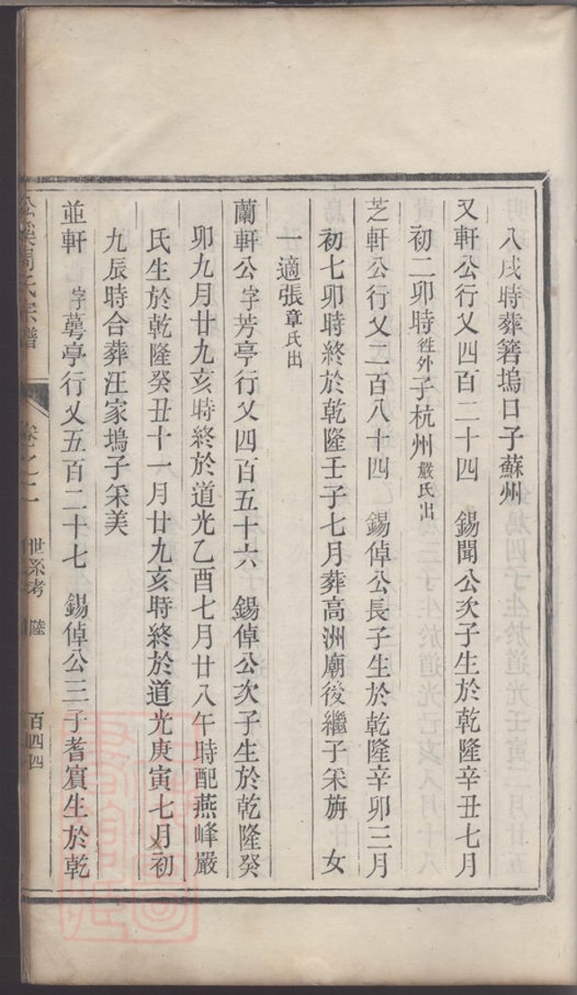 八戌時葬箬塢口子蘇州
又軒公行乂四百二十四　錫聞公次子生於乾隆辛丑七月
初二卯時徃外子杭州嚴氏出
芝軒公行乂二百八十四　錫倬公長子生於乾隆辛卯三月
初七卯時終於乾隆壬子七月葬高洲廟後繼子罙旃　女
一適張章氏出
蘭軒公字芳亭行乂四百五十六　錫倬公次子生於乾隆癸
卯九月廿九亥時終於道光乙酉七月廿八午時配燕峰嚴
氏生於乾隆癸丑十一月廿九亥時終於道光庚寅七月初
九辰時合葬汪家塢子罙美
並軒　字蕚亭行乂五百二十七　錫倬公三子耆賔生於乾
周氏宗譜　卷之二　世系考　陸　百四四